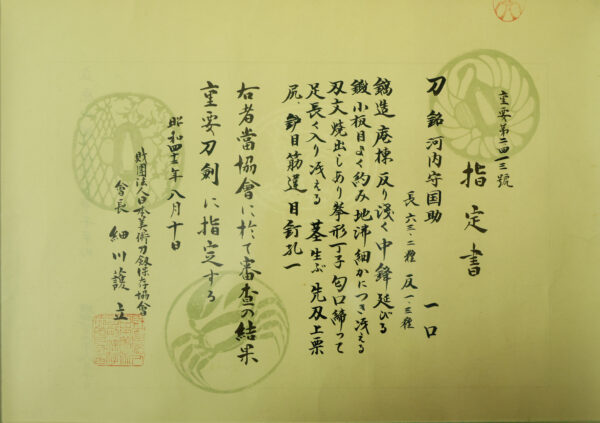 重要第二四一三號
指定書
刀 銘 河内守国助 一口
長 六三.二糎 反 一.三糎
鎬造 庵棟 反り浅く 中鋒延びる
鍛 小板目よく約み 地沸細かにつき冴える
刃文 焼出しあり 拳形丁子 匂口締って
足長く入り 冴える 茎 生ぶ 先刃上栗
尻 鑢目筋違 目釘孔一
右者當協會に於て審査の結果
重要刀剣に指定する
昭和四十三年八月十日
財團法人日本美術刀劔保存協會
會長 細川護立